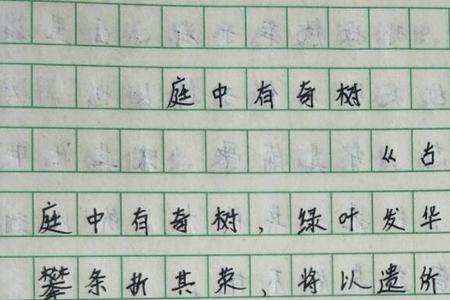 庭中有奇树
《古
庭中有奇树,绿叶发华
攀条折其荣,将以遗所